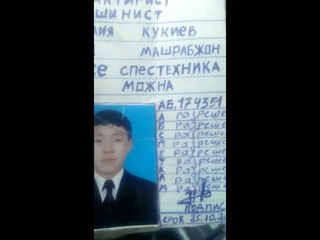 ШИНИСТ
КУКИЕВ
МАШРАБЖОН
СПЕСТЕХНИКА
МОЖНА
АБ.174351
А разреше
В разреше
С разреше
разреше
разреше
разреше
разреше
разреше
ПОДПИС
СРОК 25.10.20